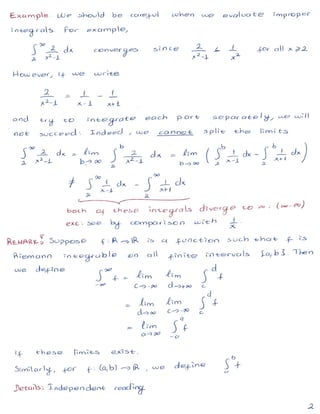 Example We should be careful when we evaluate improper
integrals. For example,
∫_2^∞ 2/(x²-1) dx converges since 2/(x²-1) ≤ 1/x² for all x ≥ 2
However, if we write
2/(x²-1) = 1/(x-1) - 1/(x+1)
and try to integrate each part separately, we will
not succeed. Indeed, we cannot split the limits
∫_2^∞ 2/(x²-1) dx = lim_{b→∞} ∫_2^b 2/(x²-1) dx = lim_{b→∞} ( ∫_2^b 1/(x-1) dx - ∫_2^b 1/(x+1) dx )
≠ ∫_2^∞ 1/(x-1) dx - ∫_2^∞ 1/(x+1) dx
both of these integrals diverge to ∞! (∞-∞)
exc: see by comparison with 1/x
REMARK: Suppose f: ℝ → ℝ is a function such that f is
Riemann integrable on all finite intervals [a,b]. Then
we define ∫_{-∞}^∞ f = lim_{c→-∞} lim_{d→+∞} ∫_c^d f
= lim_{d→∞} lim_{c→-∞} ∫_c^d f
= lim_{a→∞} ∫_{-a}^a f
if these limits exist.
Similarly, for f: (a,b) → ℝ, we define ∫_a^b f
Details: Independent reading
2